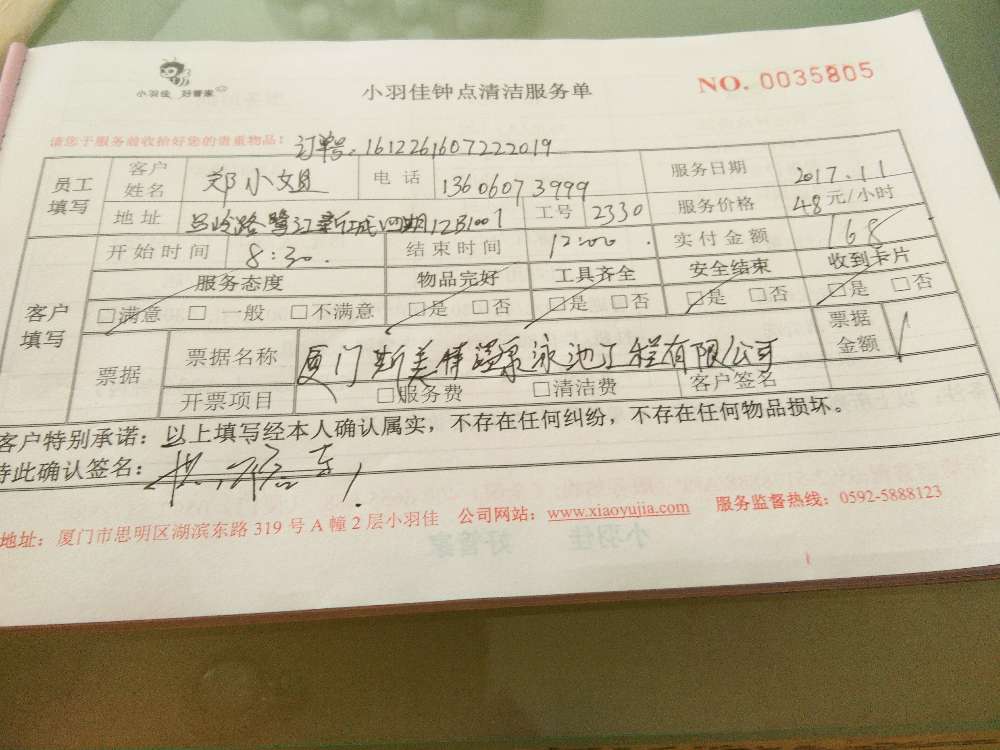 小羽佳 好管家
小羽佳钟点清洁服务单
NO. 0035805
请您于服务前收拾好您的贵重物品！
订单号：1612261607222019
员工填写 客户姓名 郑小姐 电话 13606073999 服务日期 2017.1.1
地址 吕岭路鹭江新城四期12B1001 工号 2330 服务价格 48元/小时
客户填写 开始时间 8:30. 结束时间 12:00. 实付金额 168
服务态度 物品完好 工具齐全 安全结束 收到卡片
□满意 □ 一般 □不满意 □是 □否 □是 □否 □是 □否 □是 □否
票据 票据名称 厦门斯美特温泉泳池工程有限公司 票据金额
开票项目 □服务费 □清洁费 客户签名
客户特别承诺：以上填写经本人确认属实，不存在任何纠纷，不存在任何物品损坏。
特此确认签名：
地址：厦门市思明区湖滨东路 319 号 A 幢 2 层小羽佳 公司网站：www.xiaoyujia.com 服务监督热线：0592-5888123